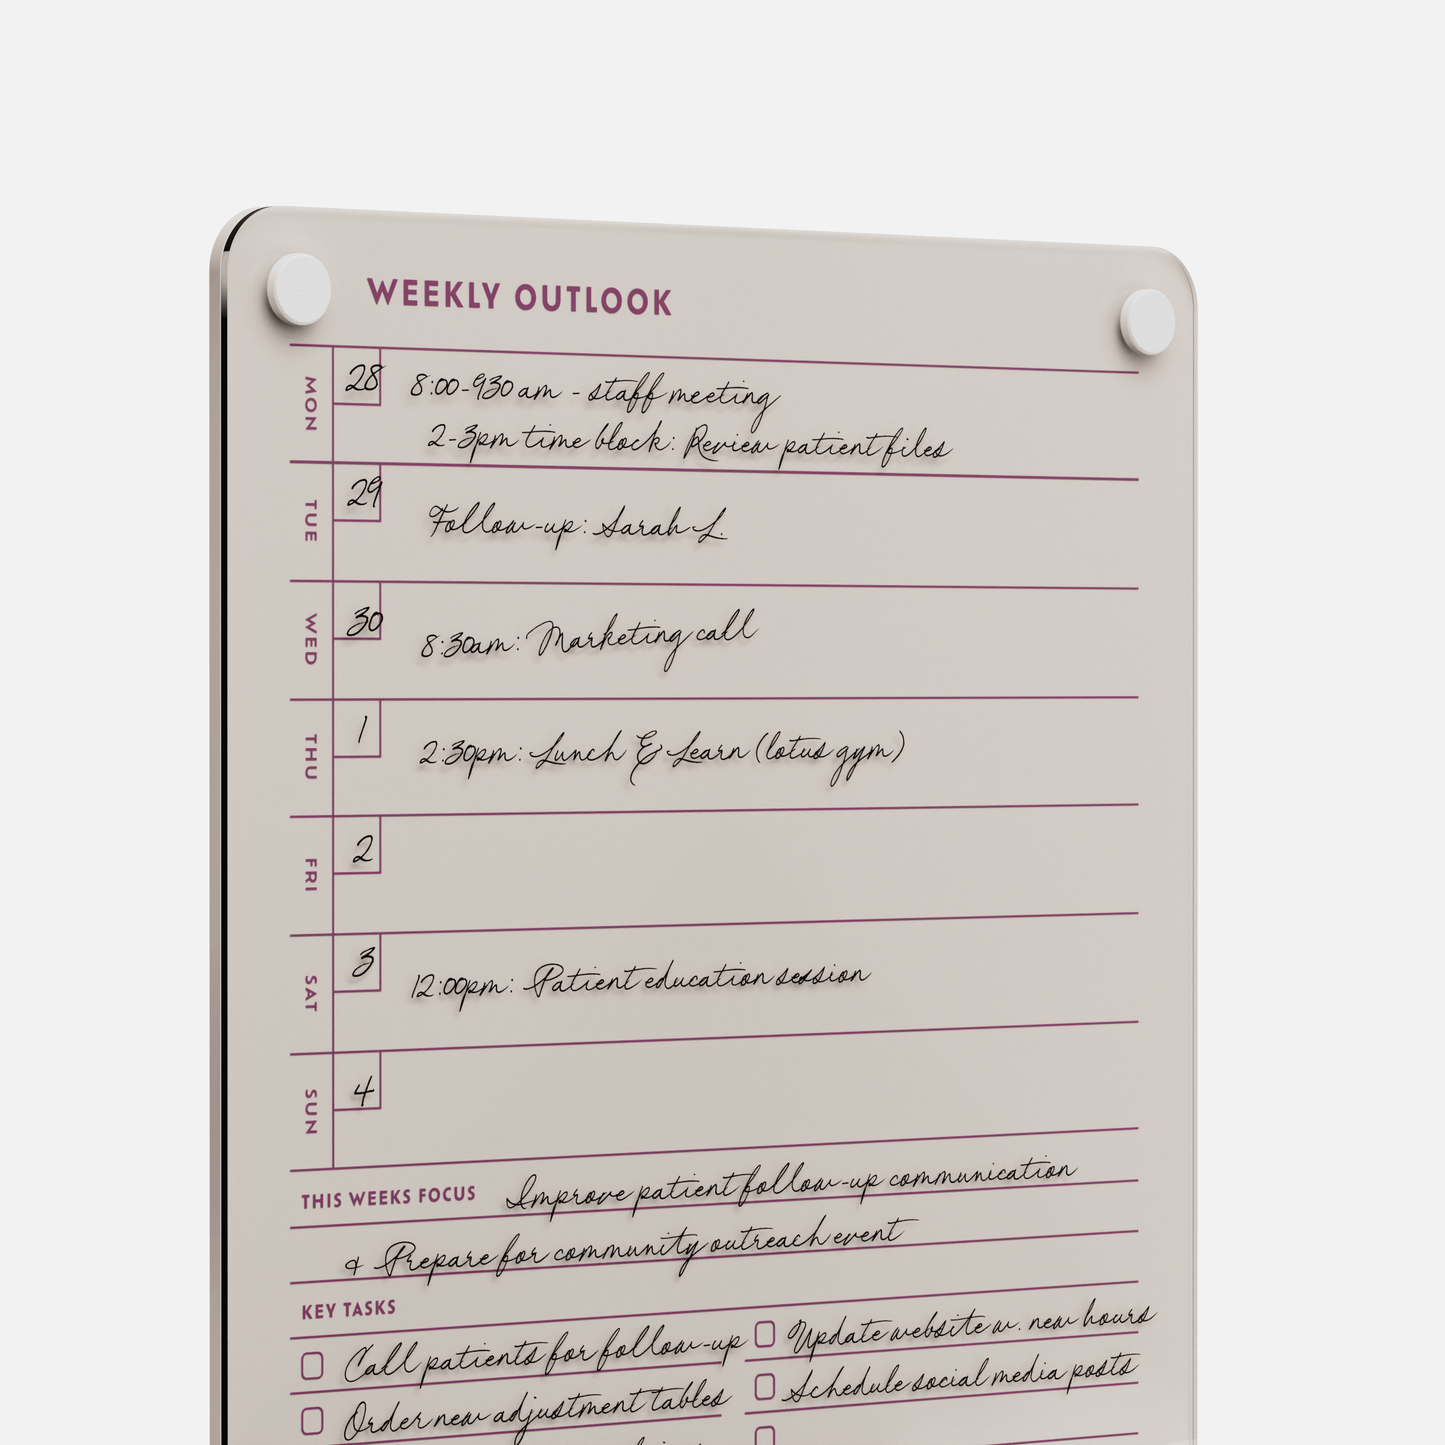 WEEKLY OUTLOOK
MON
28
8:00-930am - staff meeting
2-3pm time block: Review patient files
TUE
29
Follow-up: Sarah L.
WED
30
8:30am: Marketing call
THU
1
2:30pm: Lunch & Learn (lotus gym)
FRI
2
SAT
3
12:00pm: Patient education session
SUN
4
THIS WEEKS FOCUS Improve patient follow-up communication
& Prepare for community outreach event
KEY TASKS
Call patients for follow-up
Order new adjustment tables
Update website w. new hours
Schedule social media posts